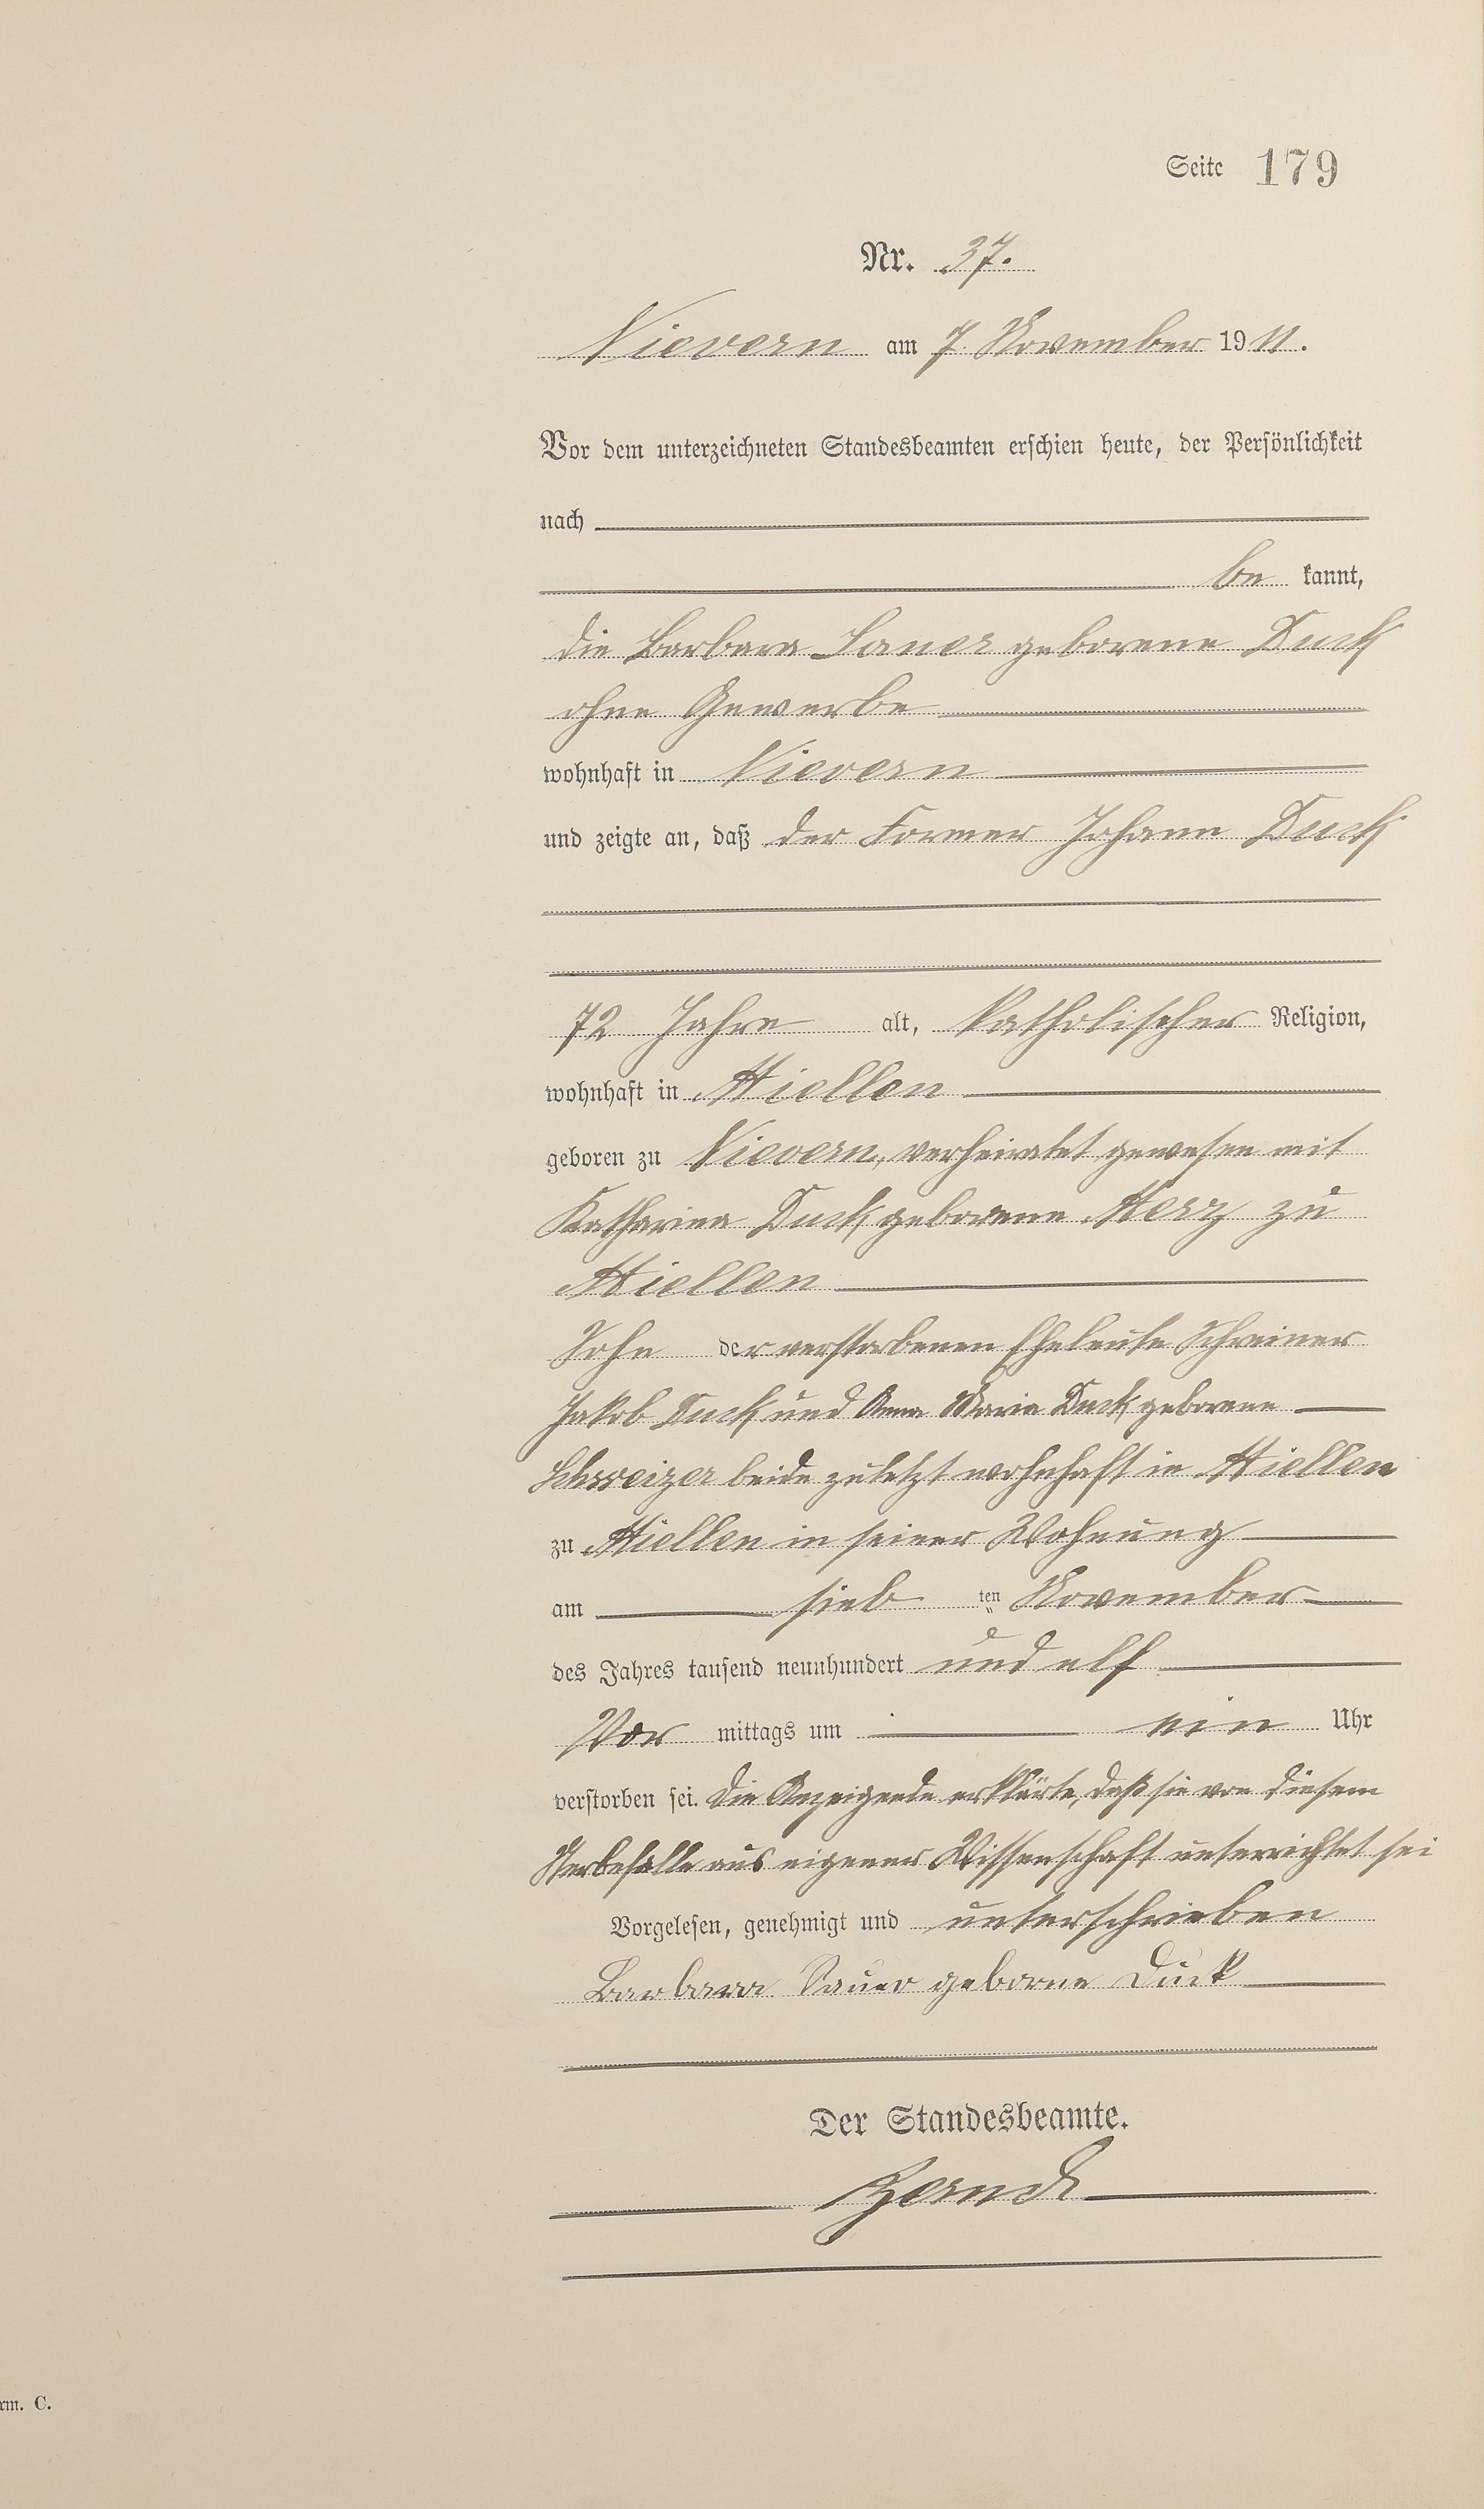 Seite 179
Nr. 37.
Nievern am 7. November 1911.
Vor dem unterzeichneten Standesbeamten erschien heute, der Persönlichkeit
nach
be kannt,
die Barbara Sauer geborene Duck
ohne Gewerbe
wohnhaft in Nievern
und zeigte an, daß der Former Johann Duck
72 Jahre alt, katholischer Religion,
wohnhaft in Miellen
geboren zu Nievern, verheiratet gewesen mit
Katharina Duck geborene Merz zu
Miellen
Sohn der verstorbenen Eheleute Schreiner
Jakob Duck und Anna Maria Duck geborene
Schweizer beide zuletzt wohnhaft in Miellen
zu Miellen in seiner Wohnung
am sieb ten November
des Jahres tausend neunhundert und elf
Vor mittags um ein Uhr
verstorben sei. Die Anzeigende erklärte, daß sie von diesem
Sterbefalle aus eigener Wissenschaft unterrichtet sei
Vorgelesen, genehmigt und unterschrieben
Barbara Sauer geborne Duck
Der Standesbeamte.
rm. C.